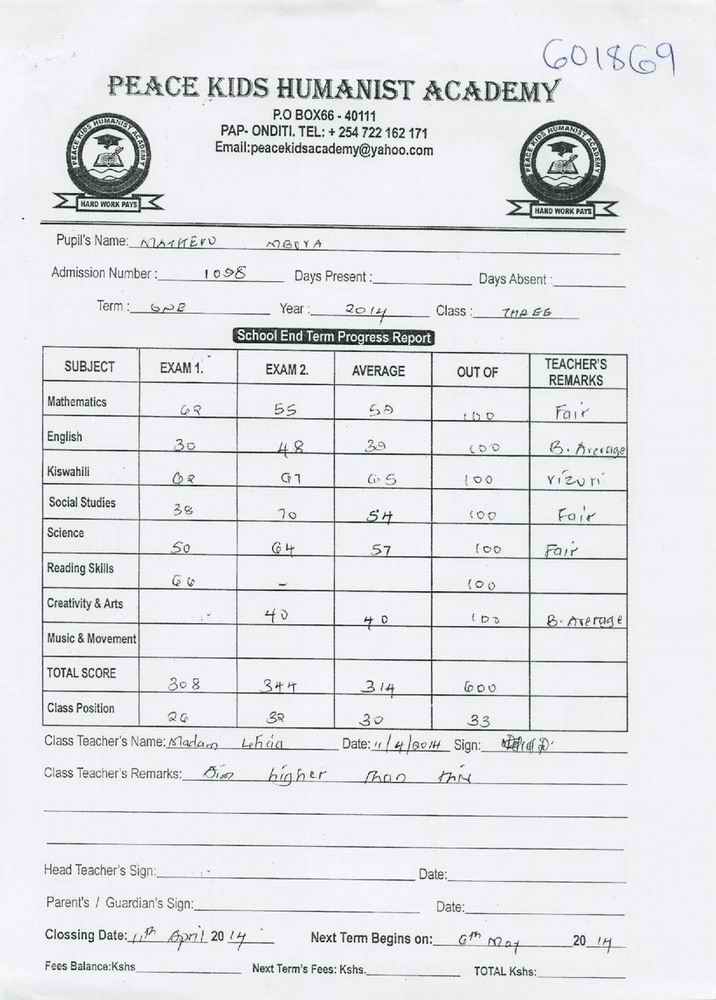 601869
PEACE KIDS HUMANIST ACADEMY
P.O BOX66 - 40111
PAP- ONDITI. TEL: + 254 722 162 171
Email:peacekidsacademy@yahoo.com
PEACE KIDS HUMANIST ACADEMY
HARD WORK PAYS
PEACE KIDS HUMANIST ACADEMY
HARD WORK PAYS
Pupil's Name: MBOYA
Admission Number : 1098 Days Present : Days Absent :
Term : ONE Year : 2014 Class : THREE
School End Term Progress Report
SUBJECT EXAM 1. EXAM 2. AVERAGE OUT OF TEACHER'S REMARKS
Mathematics 62 55 59 100 Fair
English 30 48 39 100 B. Average
Kiswahili 62 67 65 100 Vizuri
Social Studies 38 70 54 100 Fair
Science 50 64 57 100 Fair
Reading Skills 66 - 100
Creativity & Arts 40 40 100 B. Average
Music & Movement
TOTAL SCORE 308 344 314 600
Class Position 26 32 30 33
Class Teacher's Name: Madam Date: 11/4/2014 Sign:
Class Teacher's Remarks: Aim higher than this
Head Teacher's Sign: Date:
Parent's / Guardian's Sign: Date:
Clossing Date: 11th April 2014 Next Term Begins on: 6th May 2014
Fees Balance:Kshs. Next Term's Fees: Kshs. TOTAL Kshs: